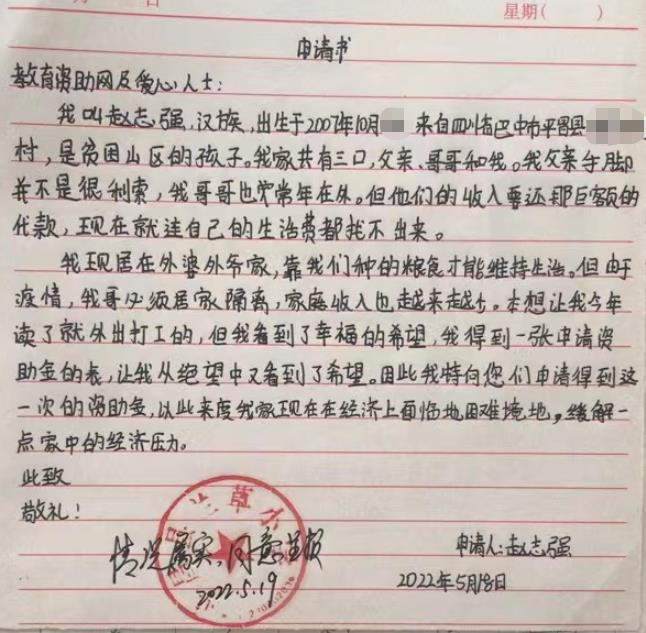 星期(  )
申请书
教育资助网及爱心人士:
我叫赵志强,汉族,出生于2007年10月 来自四川省巴中市平昌县
村,是贫困山区的孩子。我家共有三口,父亲、哥哥和我。我父亲手脚
并不是很利索,我哥哥也常常年在外。但他们的收入要还那巨额的
贷款,现在就连自己的生活费都找不出来。
我现居在外婆外爷家,靠我们种的粮食才能维持生活。但由于
疫情,我哥必须居家隔离,家庭收入也越来越少。本想让我今年
读了就外出打工的,但我看到了幸福的希望,我得到一张申请资
助金的表,让我从绝望中又看到了希望。因此我特向您们申请得到这
一次的资助金,以此来度我家现在在经济上面临地困难境地,缓解一
点家中的经济压力。
此致
敬礼!
情况属实,同意呈报
2022.5.19
申请人:赵志强
2022年5月18日